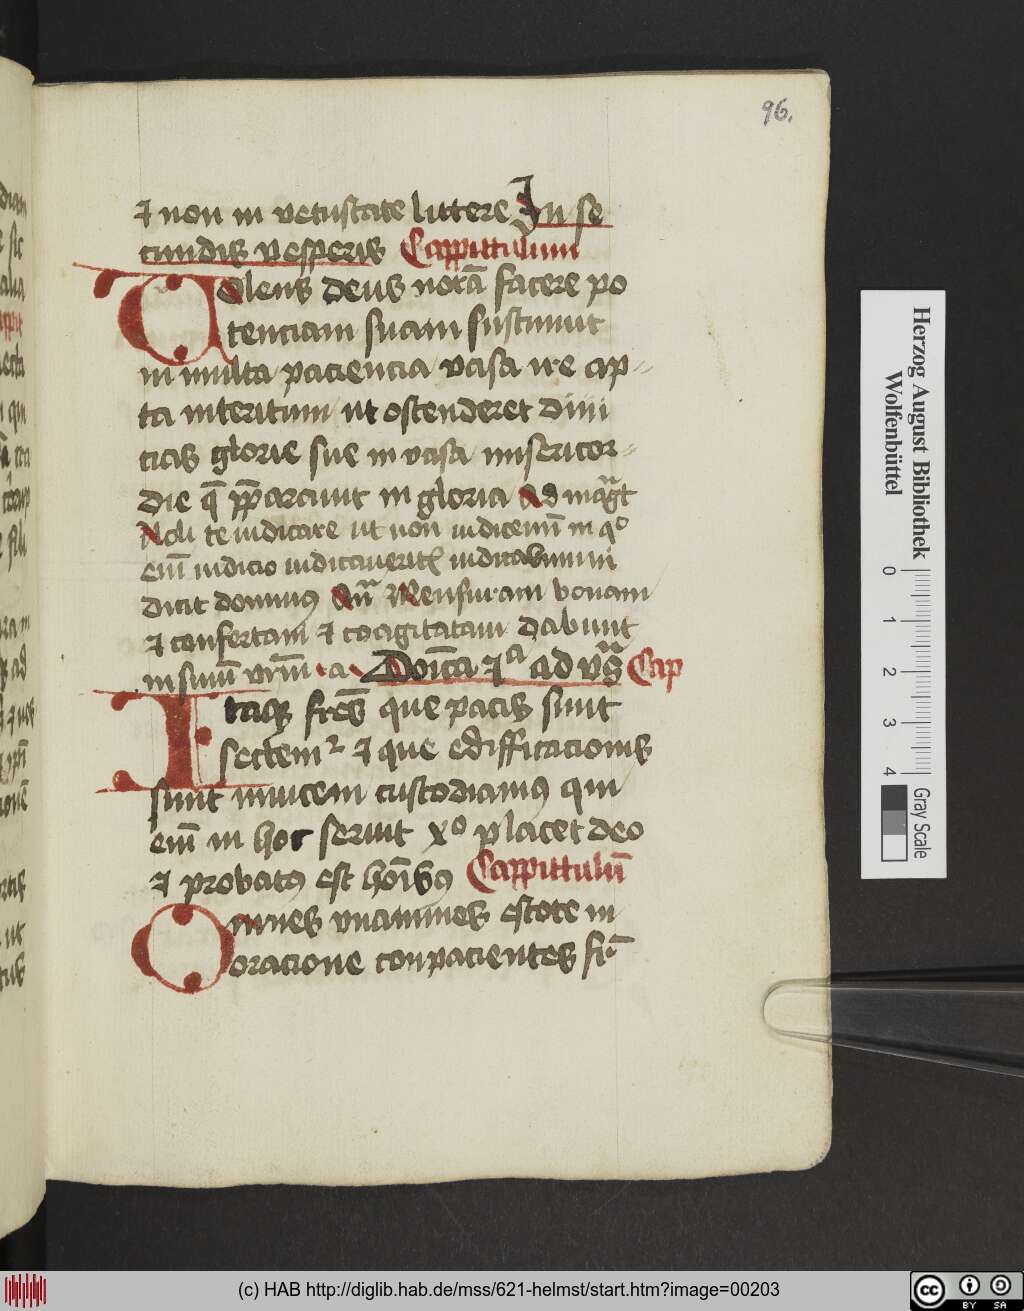 96.
⁊ non in vetustate littere In se
cundis vesperis Cappittulum
Volens deus notā facere po
tenciam suam sustinuit
in multa paciencia vasa ire ap
ta interitum ut ostenderet divi
cias glorie sue in vasa misericor
die q̄ p̄paravit in gloria Ad magt̄
Noli te iudicare ut non iudicemī in qo
enī iudicio iudicaveritꝭ iudicabimini
dicit dominꝰ An̄ Mensuram bonam
⁊ confertam ⁊ coagitatam dabunt
in sinū vrm̄ Doīca ad vꝭ Cap
Itaqꝫ frēs que pacis sunt
sectemr ⁊ que edifficacionis
sunt invicem custodiamꝰ qui
enī in hoc servit xo placet deo
⁊ probatꝰ est hōībꝰ Cappittulū
Omnes unanimes estote in
oracione conpacientes
Herzog August Bibliothek
Wolfenbüttel
0 1 2 3 4
Gray Scale
(c) HAB http://diglib.hab.de/mss/621-helmst/start.htm?image=00203
cc BY SA